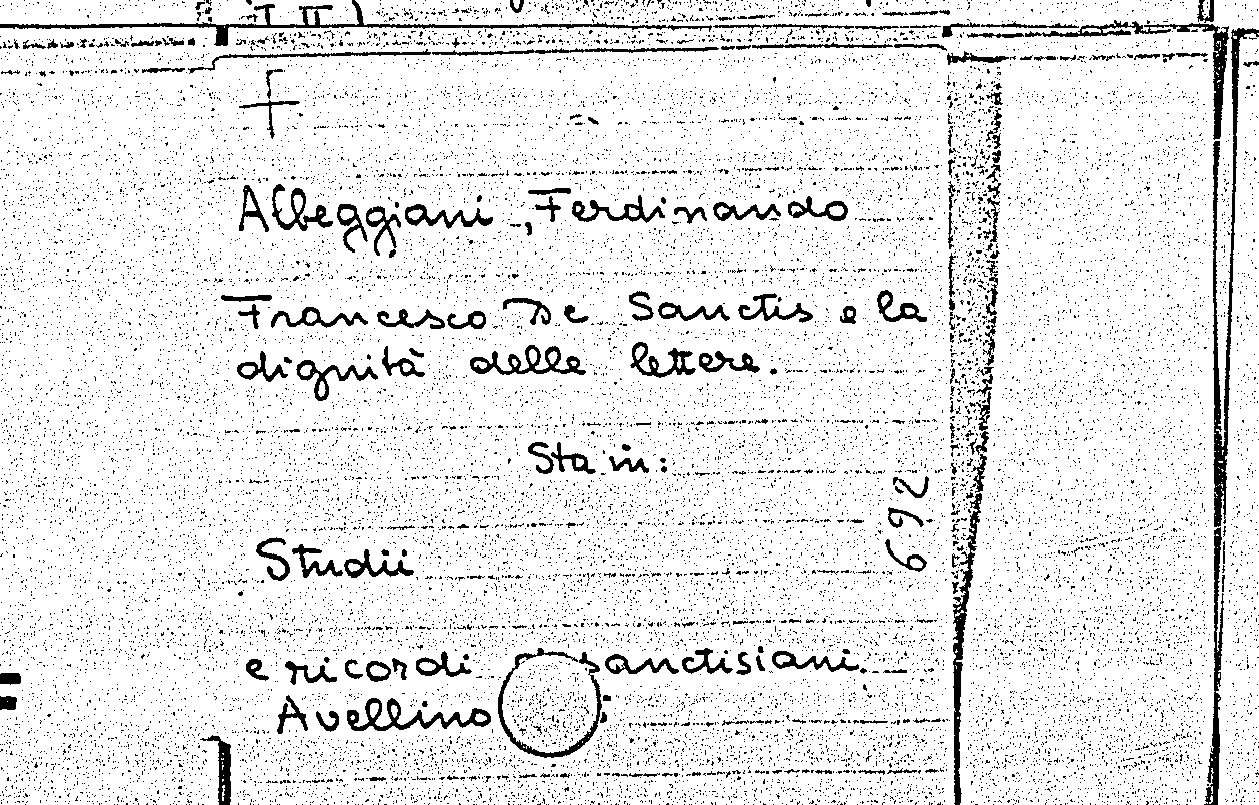 Albeggiani, Ferdinando
Francesco De Sanctis e la
dignità delle lettere.
Sta in:
692
Studii
e ricordi sanctisiani.
Avellino